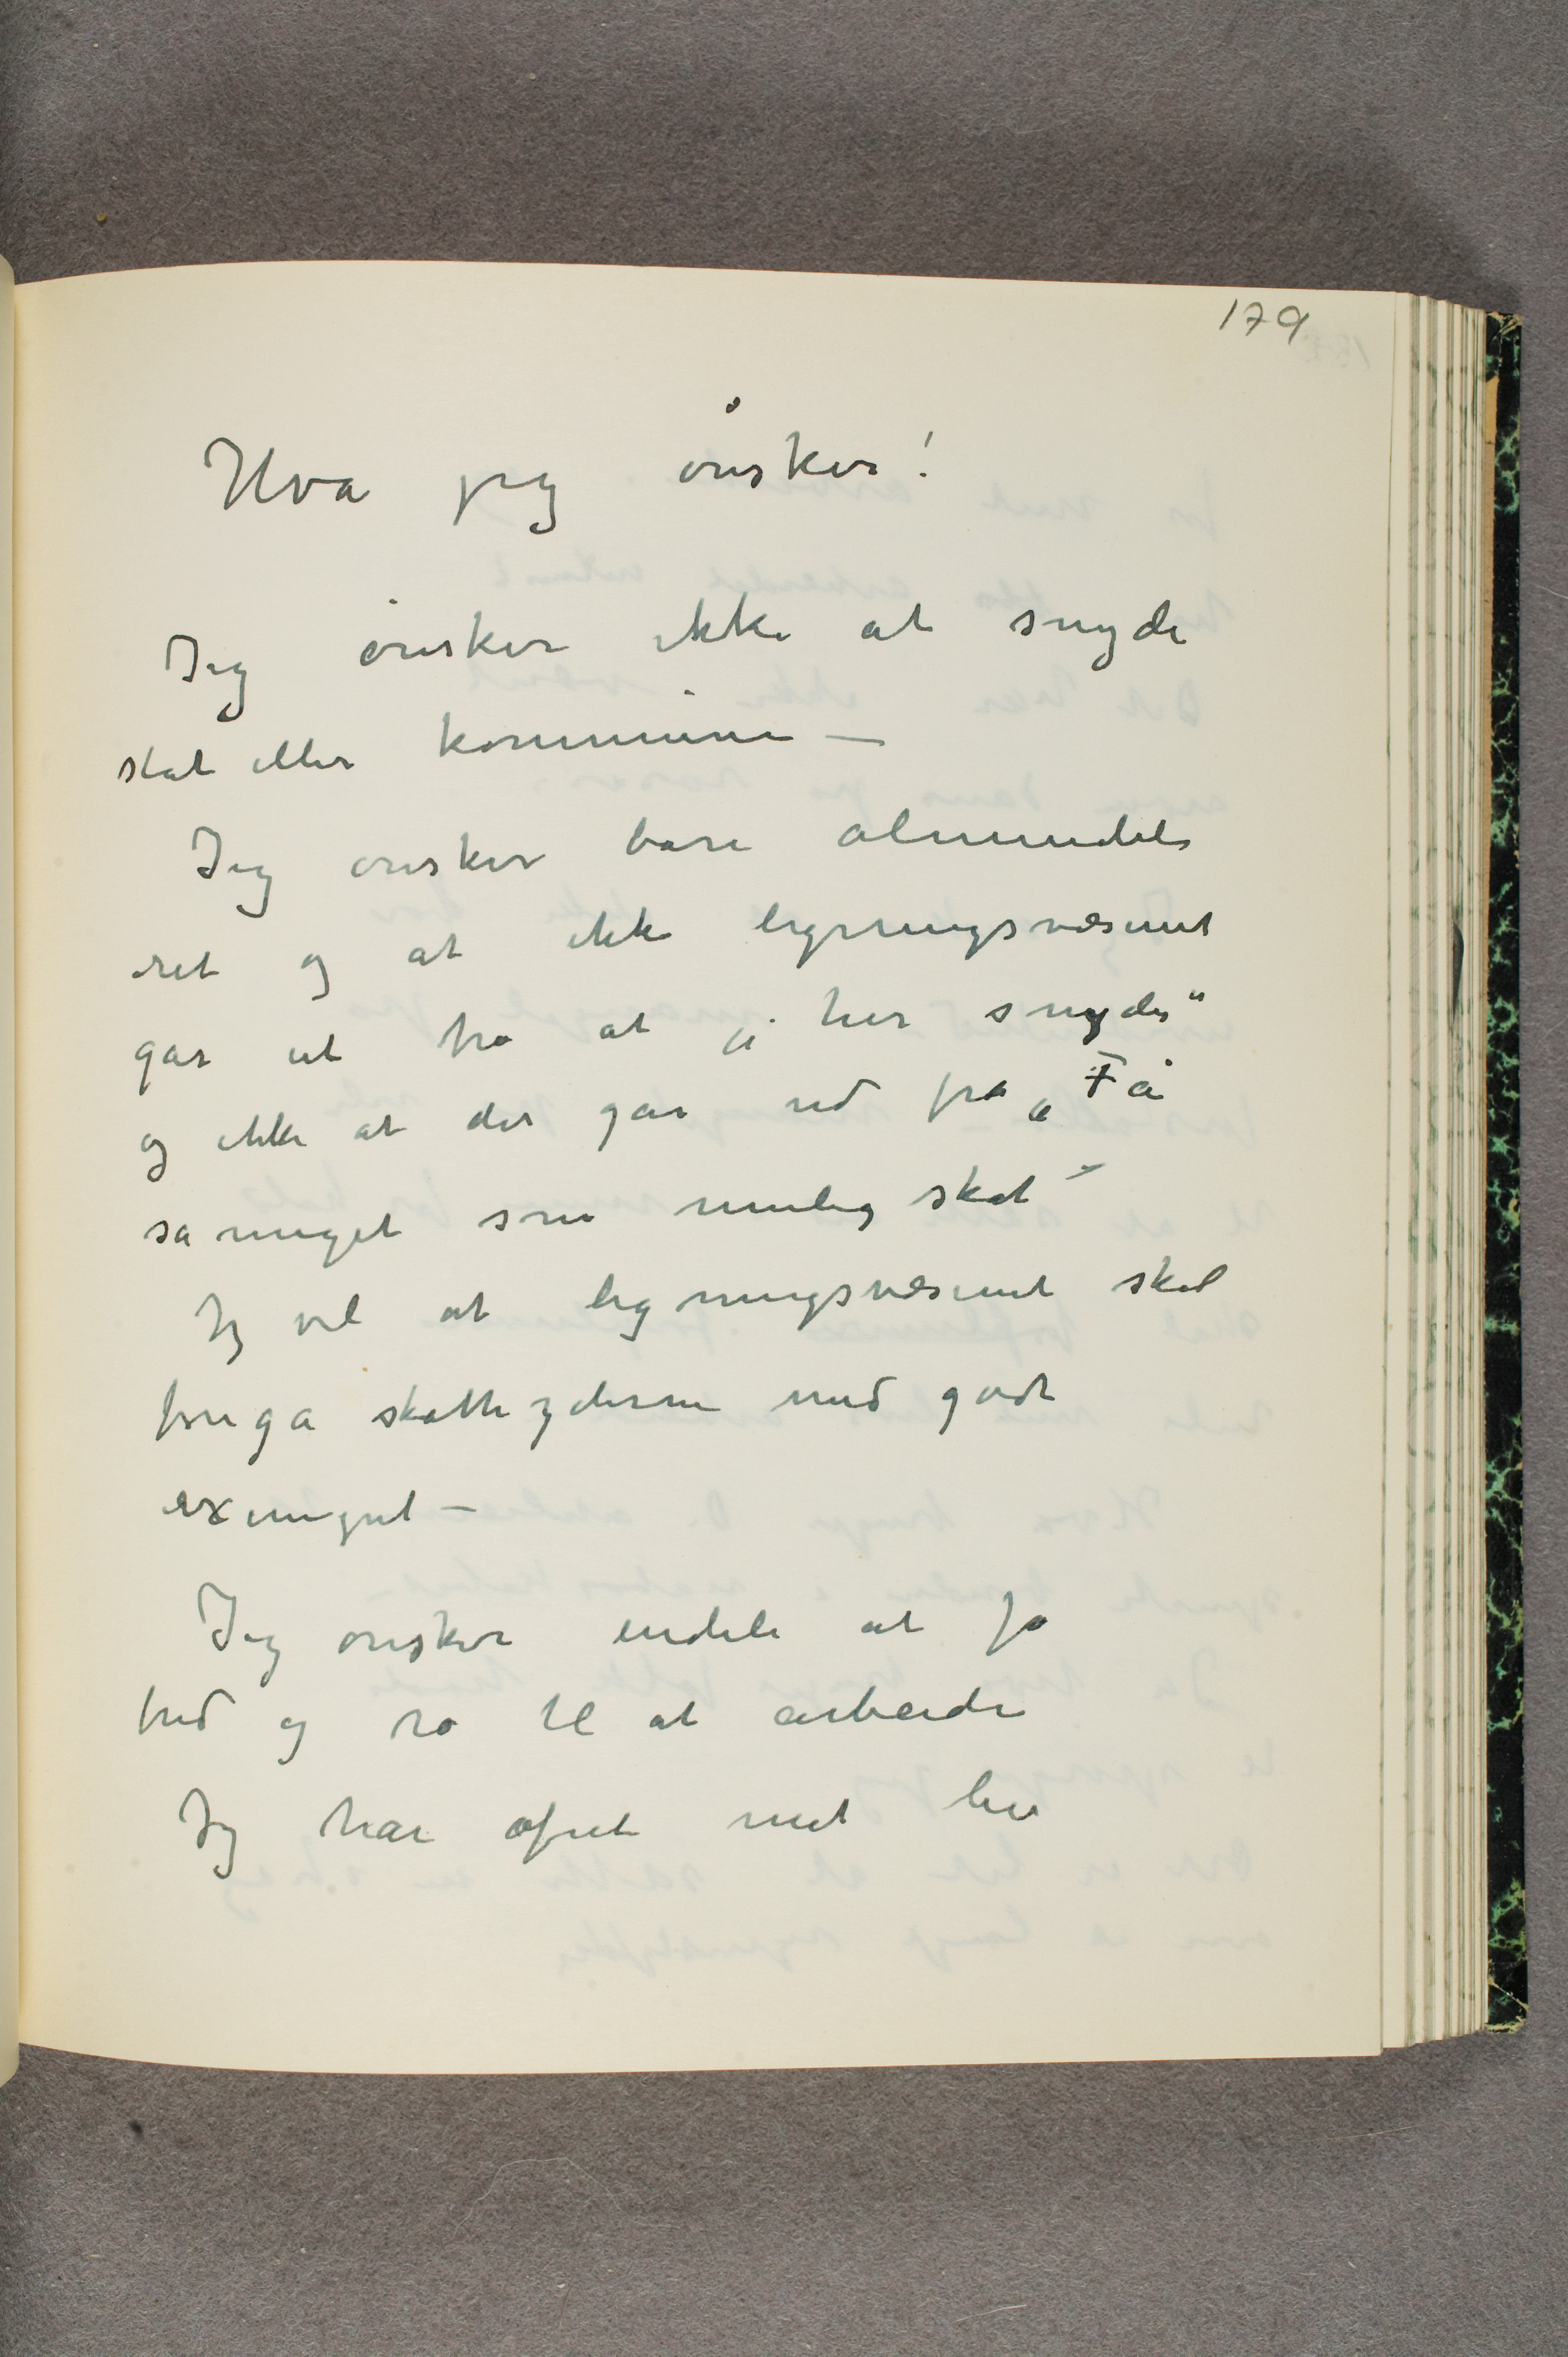 179
Hva jeg ønsker!
Jeg ønsker ikke at snyde
stat eller kommune –
Jeg ønsker bare almindeli
ret og at ikke ligningsvæsenet
går ut fra at „ her snydes“
og ikke at der går ud fra „Få
så meget som mulig skat –
Jeg vil at ligningsvæsenet skal
foregå skatteyderne med godt
exempel –
Jeg ønsker endeli at få
fred og ro til at arbeide
Jeg har ofret mit liv